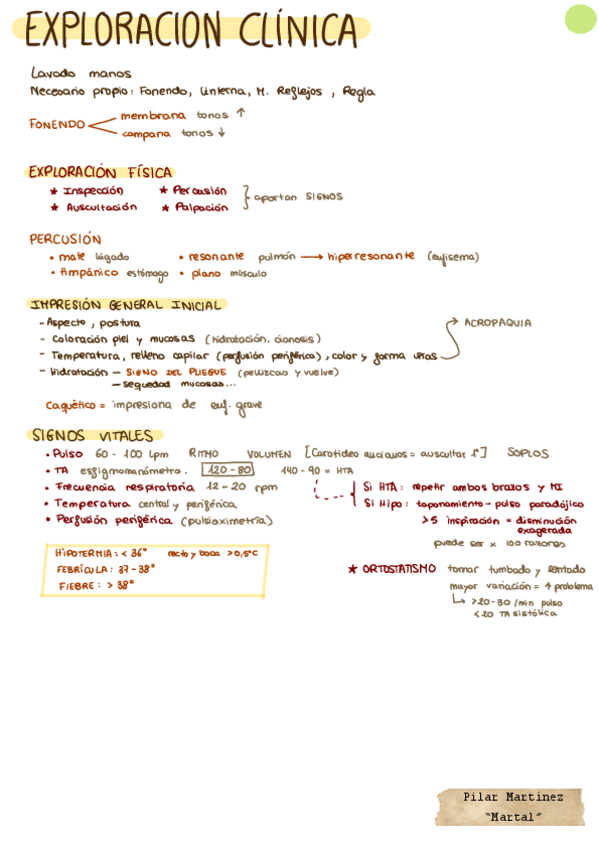 EXPLORACION CLÍNICA
Lavado manos
Necesario propio: Fonendo, linterna, M. Reflejos, Regla
FONENDO
membrana tonos ↑
campana tonos ↓
EXPLORACIÓN FÍSICA
★ Inspección ★ Percusión
★ Auscultación ★ Palpación
aportan SIGNOS
PERCUSIÓN
• mate hígado • resonante pulmón → hiperresonante (enfisema)
• timpánico estómago • plano músculo
IMPRESIÓN GENERAL INICIAL
- Aspecto, postura
- Coloración piel y mucosas (hidratación, cianosis)
- Temperatura, relleno capilar (perfusión periférica), color y forma uñas → ACROPAQUIA
- Hidratación - SIGNO DEL PLIEGUE (pellizcas y vuelve)
- sequedad mucosas...
Caquético = impresiona de enf. grave
SIGNOS VITALES
• Pulso 60 - 100 lpm RITMO VOLUMEN [Carotideo ancianos = auscultar 1º] SOPLOS
• TA esfigmomanómetro. 120-80 140-90 = HTA
• Frecuencia respiratoria 12-20 rpm
• Temperatura central y periférica
• Perfusión periférica (pulsioximetría)
Si HTA: repetir ambos brazos y MI
Si Hipo: taponamiento - pulso paradójico
>5 inspiración = disminución exagerada
puede ser x 100 razones
HIPOTERMIA: < 36° recto y boca >0,5°C
FEBRÍCULA: 37-38°
FIEBRE: > 38°
★ ORTOSTATISMO tomar tumbado y sentado
mayor variación = ↑ problema
↳ >20-30/min pulso
<20 TA sistólica
Pilar Martinez
"Martal"